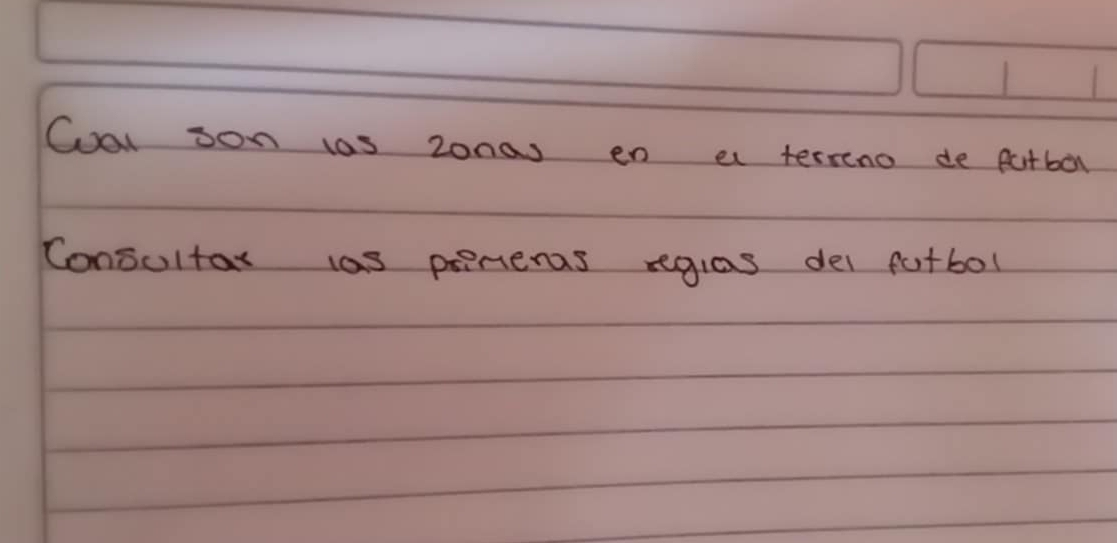 Cual son las zonas en el terreno de futbol
Consultar las primeras reglas del futbol